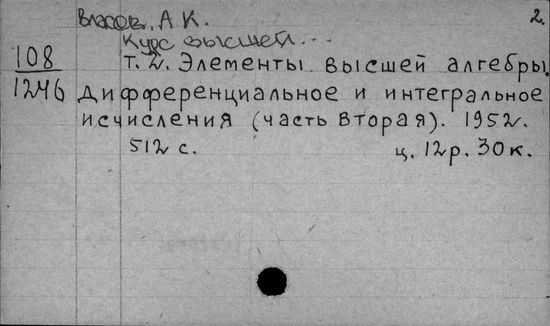 Власов, А. К. 2.
Курс высшей...
108 Т. 2. Элементы высшей алгебры.
1246 Дифференциальное и интегральное
исчисления (часть вторая). 1952.
512 с. ц. 12р. 30к.